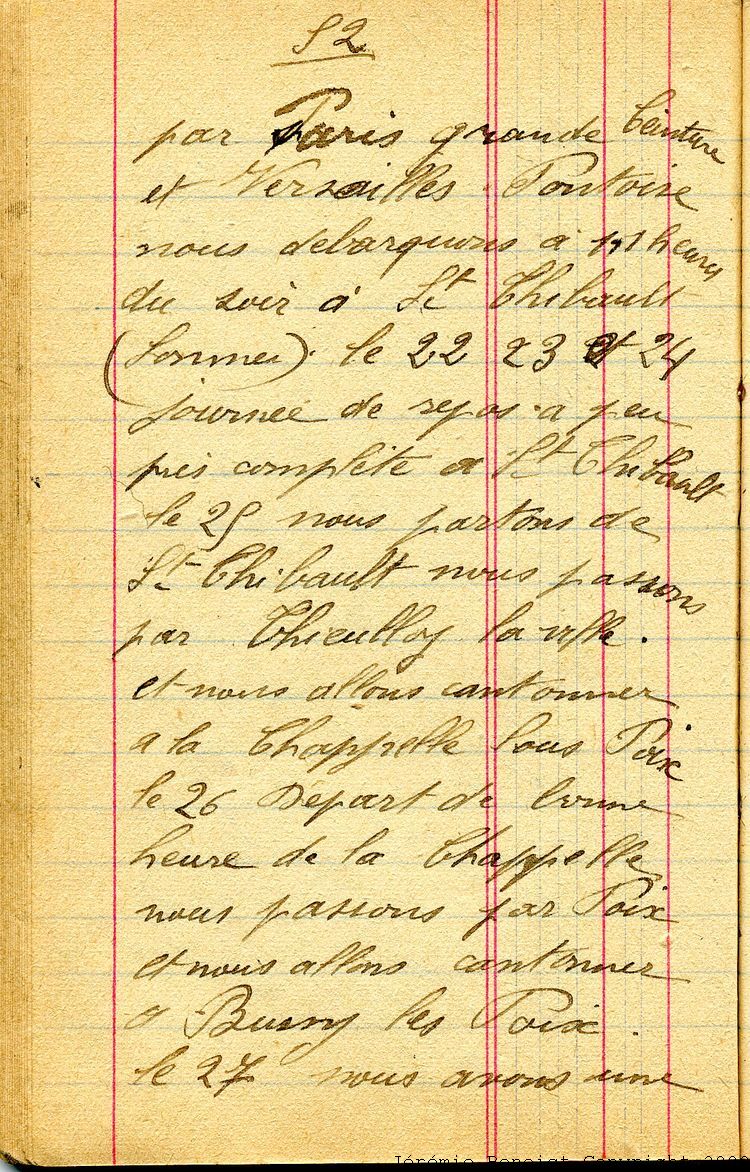 52
par Paris grande Ceinture
et Versailles Pontoise
nous debarquons a heures
du soir à St Thibault
(Somme). le 22 23 et 24
journee de repos a peu
pres complète a St Thibault
le 25 nous partons de
St Thibault nous passons
par Thieulloy la ville.
et nous allons cantonner
a la Chappelle sous Poix
le 26 Depart de bonne
heure de la Chappelle
nous passons par Poix
et nous allons cantonner
a Bussy les Poix.
le 27 nous avons une
Jérémie Benoist Copyright